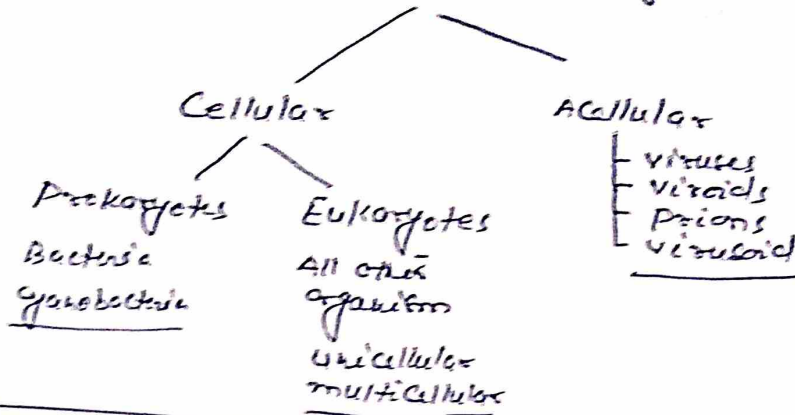 Cellular
Acellular
viruses
viroids
Prions
virusoid
Prokaryotes
Bacteria
Cyanobacteria
Eukaryotes
All other
organism
unicellular
multicellular